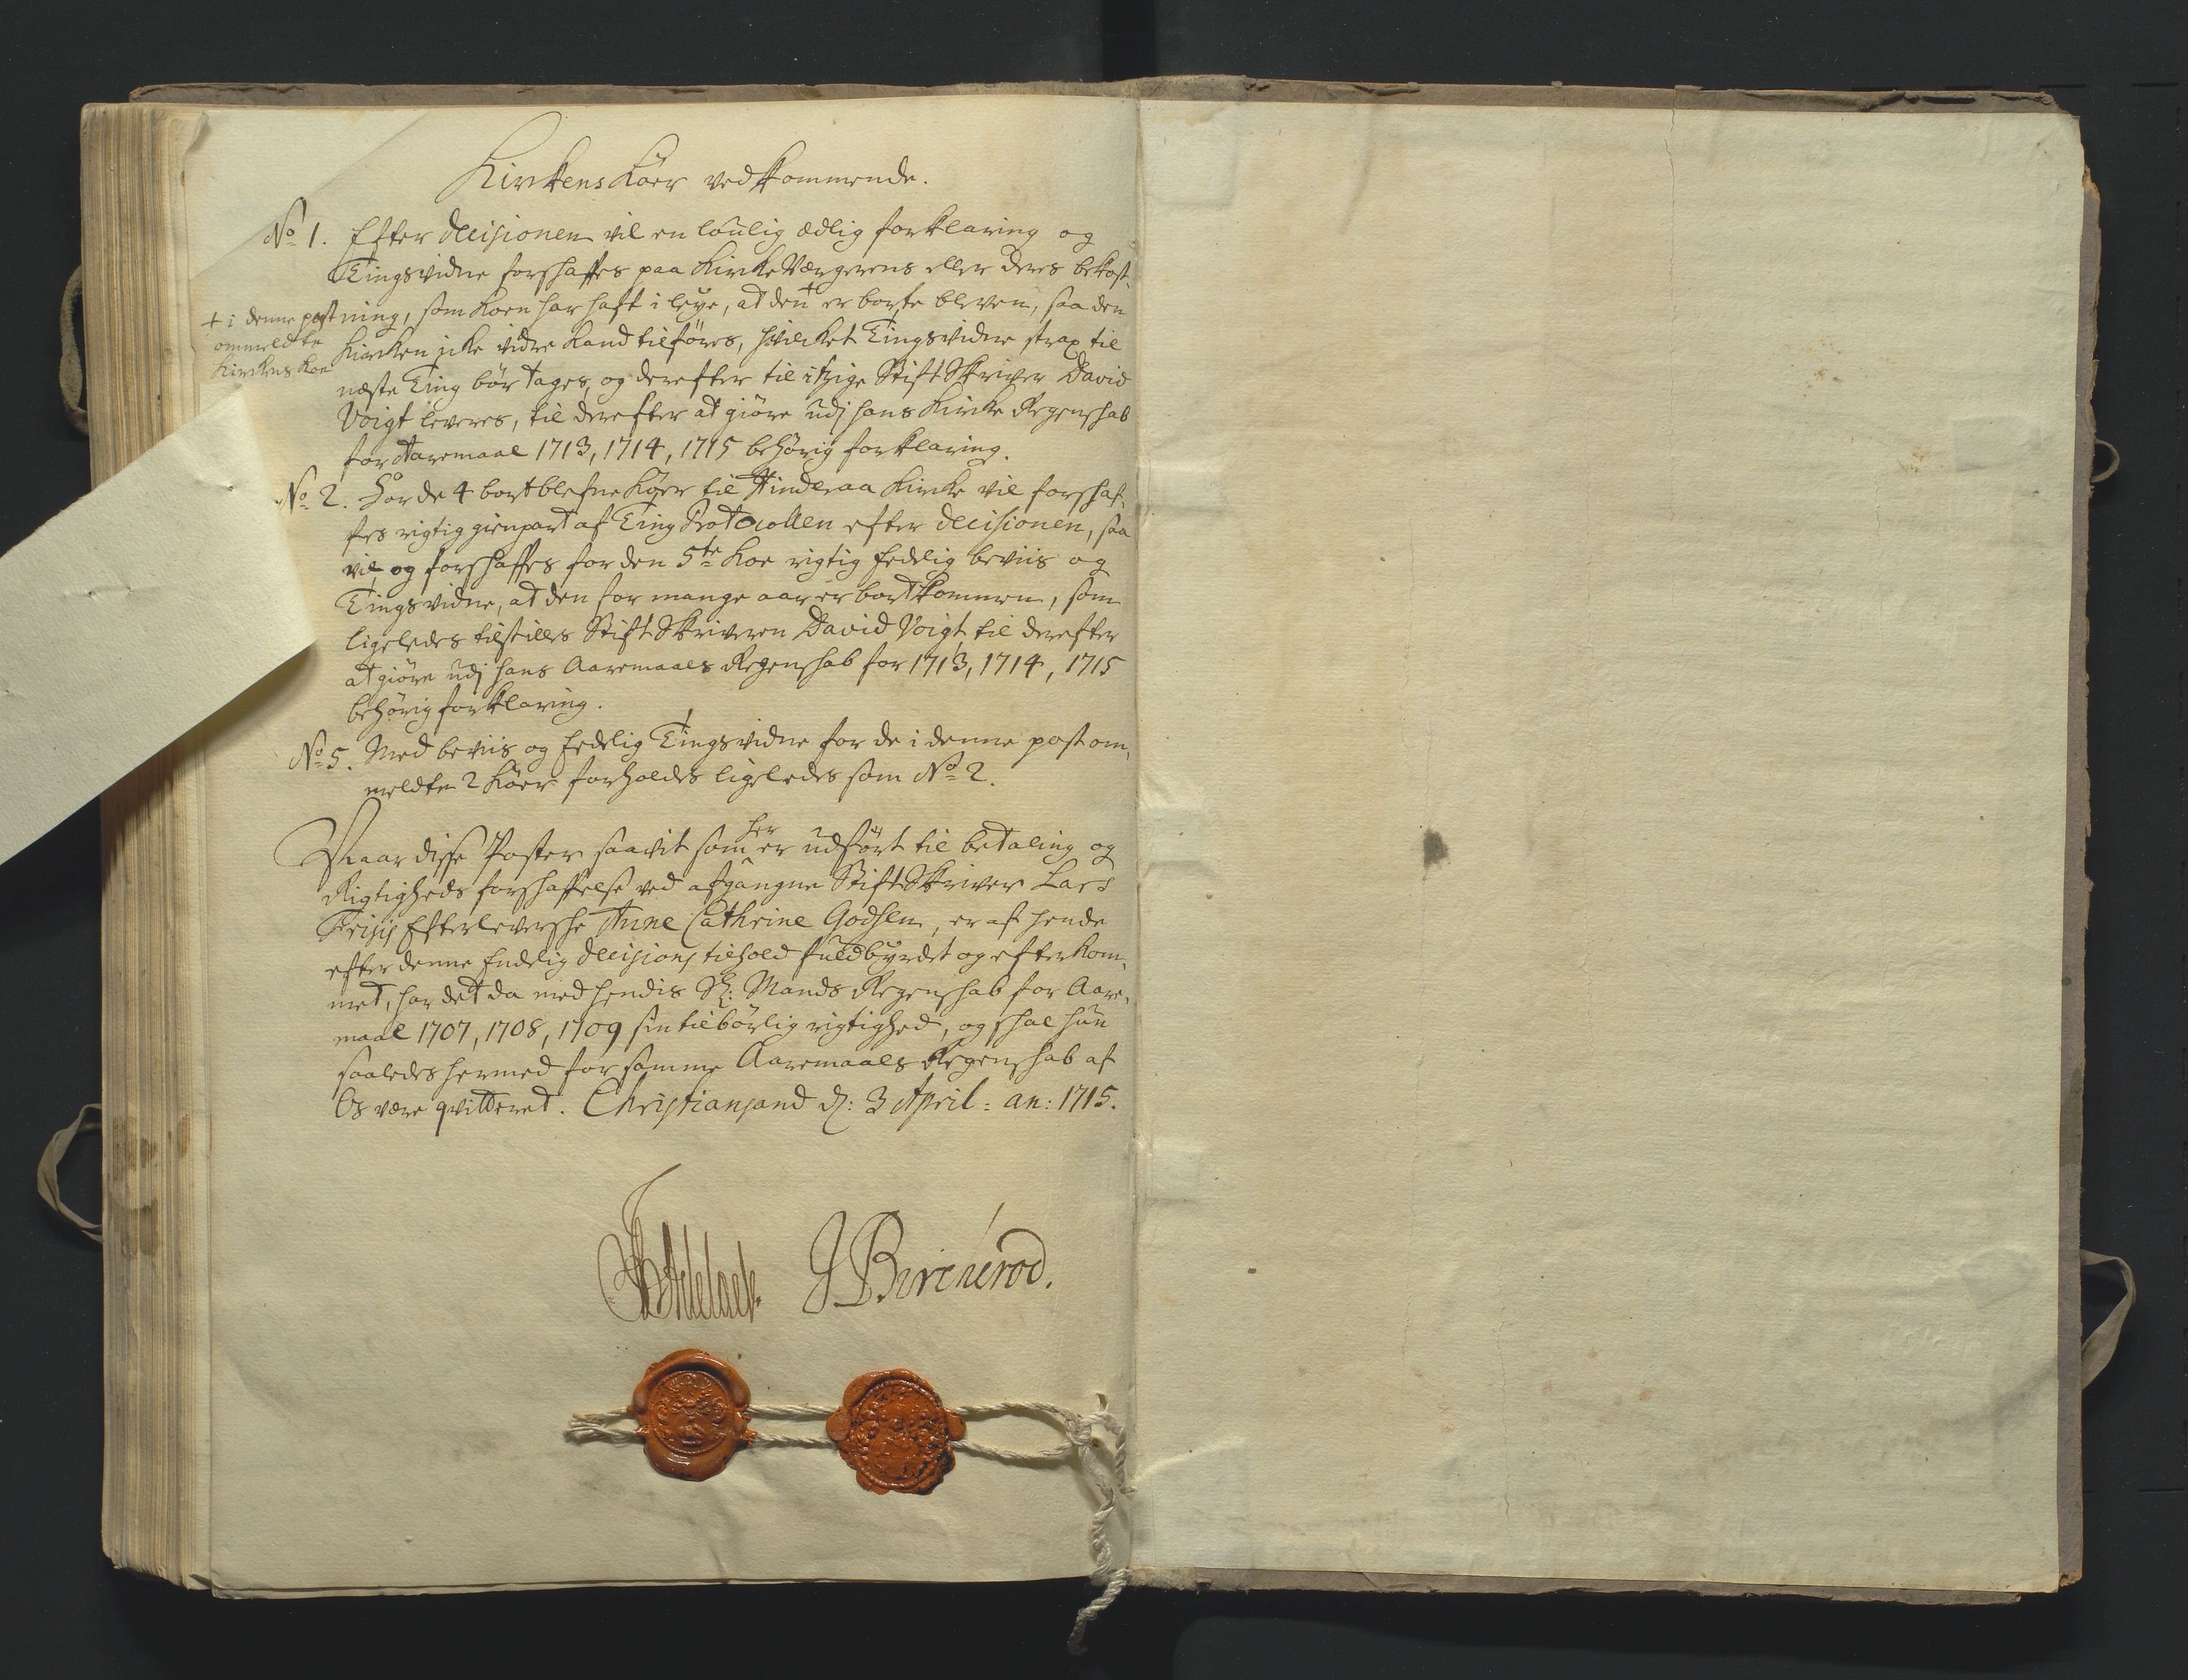 Kirkens Köer vedkommende.
No 1. Efter decisionen vil en loulig ædlig forklaring og
Tingsvidne forskaffes paa KirkeVærgerens eller deres bekost-
ning, som Koen har haft i leye, at den + er borte bleven, saa den
+ i denne post
ommeldte
Kirkens Koe
Kirken icke vidre kand tilföres, hvilcket Tingsvidne strax til
næste Ting bör tages, og derefter til itzige StiftSkriver David
Voigt leveres, til derefter at giöre udj hans Kirke Regenskab
for Aaremaal 1713, 1714, 1715 behörig forklaring.
No 2. For de 4 bortblefne Köer til Hinderaa Kirke vil forskaf-
fes rigtig gienpart af Ting Protocollen efter decisionen, saa
vil og forskaffes for den 5te Koe rigtig Eedlig beviis og
Tingsvidne, at den for mange aar er bortkommen, som
ligeledes tilstilles StiftSkriveren David Voigt til derefter
at giöre udj hans Aaremaals Regenskab for 1713, 1714, 1715
behörig forklaring.
No 5. Med beviis og Eedlig Tingsvidne for de i denne post om-
meldte 2 Köer forholdes ligeledes som No 2.
Naar disse Poster saavit som her er udfört til betaling og
Rigtigheds forskaffelse ved afgangne StiftSkriver Lars
Frisis Efterleverske Anne Cathrine Godsen, er af hende
efter denne Endelig decisions tilhold fuldbyrdet og efterkom-
met, har det da med hendis Sl: Mands Regenskab for Aare-
maal 1707, 1708, 1709 sin tilbörlig rigtighed, og skal hun
saaledes hermed for samme Aaremaals Regenskab af
Os være qvitteret. Christiansand d: 3 April: an: 1715.
Adelaer. J Bircherod.